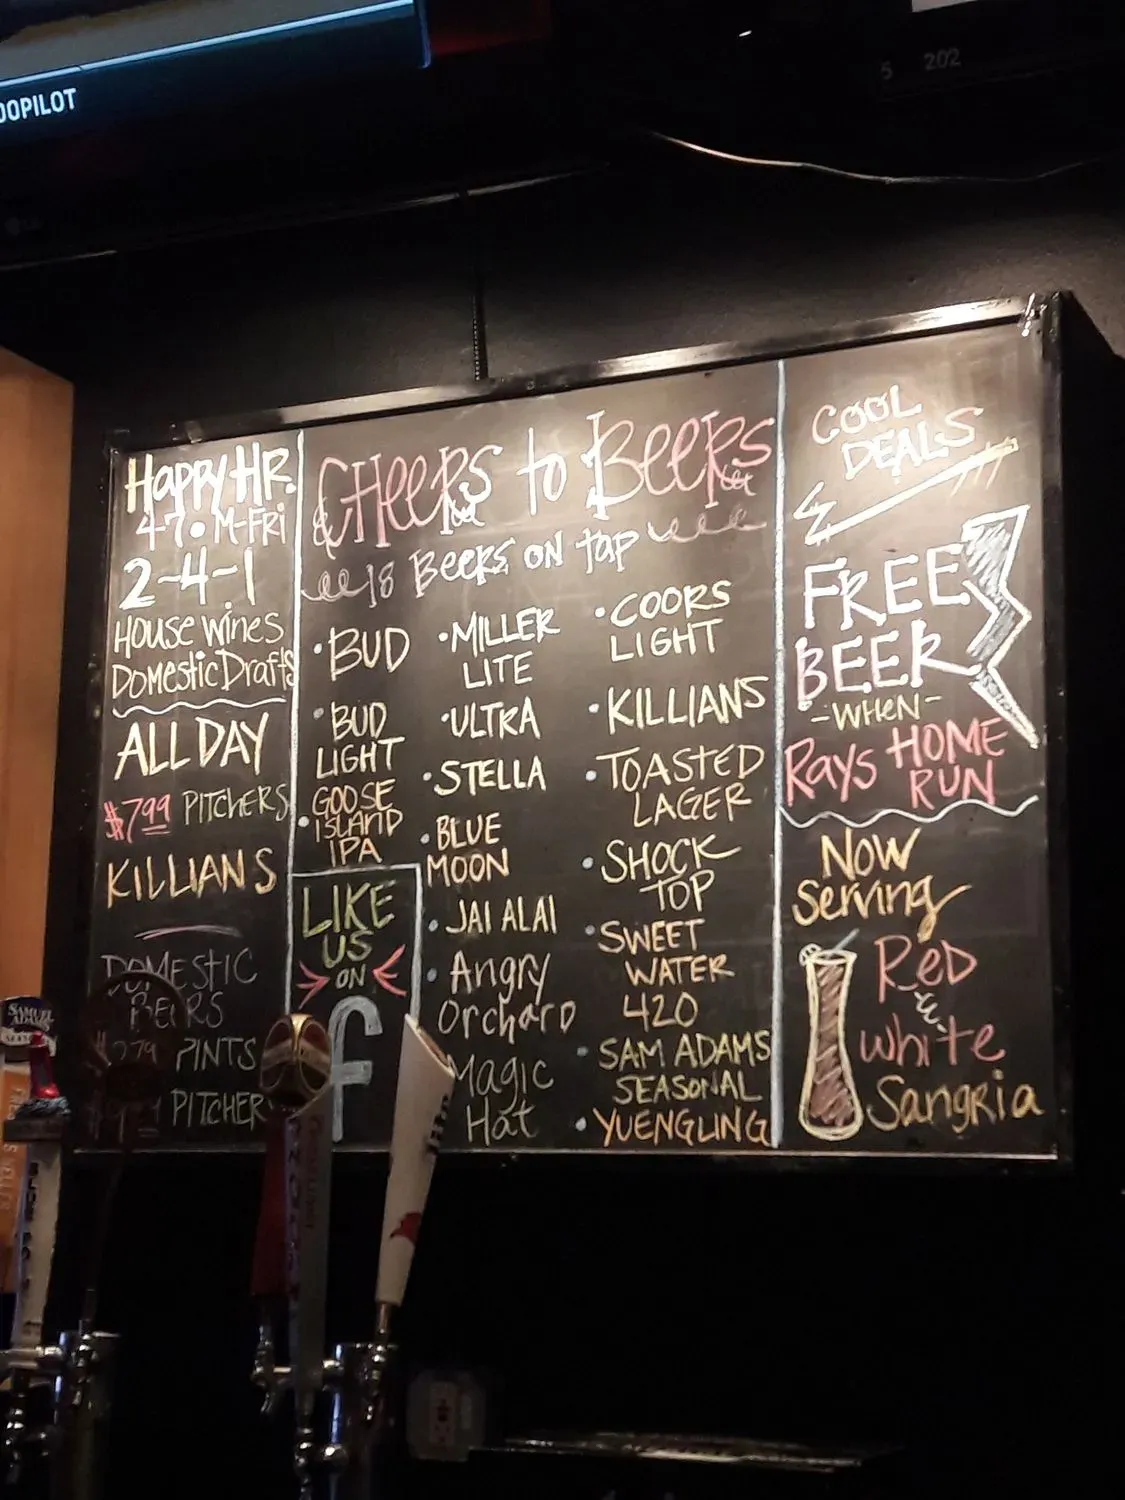 OOPILOT
5 202
HAPPY HR.
4-7 • M-FRI
2-4-1
HOUSE WINES
DOMESTIC DRAFTS
ALL DAY
$7.99 PITCHERS
KILLIANS
DOMESTIC
BEERS
PINTS
PITCHER
CHEERS to BEERS
18 BEERS ON tap
• BUD
• BUD
LIGHT
• GOOSE
ISLAND
IPA
LIKE
US
ON
f
• MILLER
LITE
• ULTRA
• STELLA
• BLUE
MOON
• JAI ALAI
• Angry
Orchard
Magic
Hat
• COORS
LIGHT
• KILLIANS
• TOASTED
LAGER
• SHOCK
TOP
• SWEET
WATER
420
• SAM ADAMS
SEASONAL
• YUENGLING
COOL
DEALS
FREE
BEER
-WHEN-
RAYS HOME
RUN
NOW
SERVING
RED
&
white
SANGRIA
SAMUEL
ADAMS